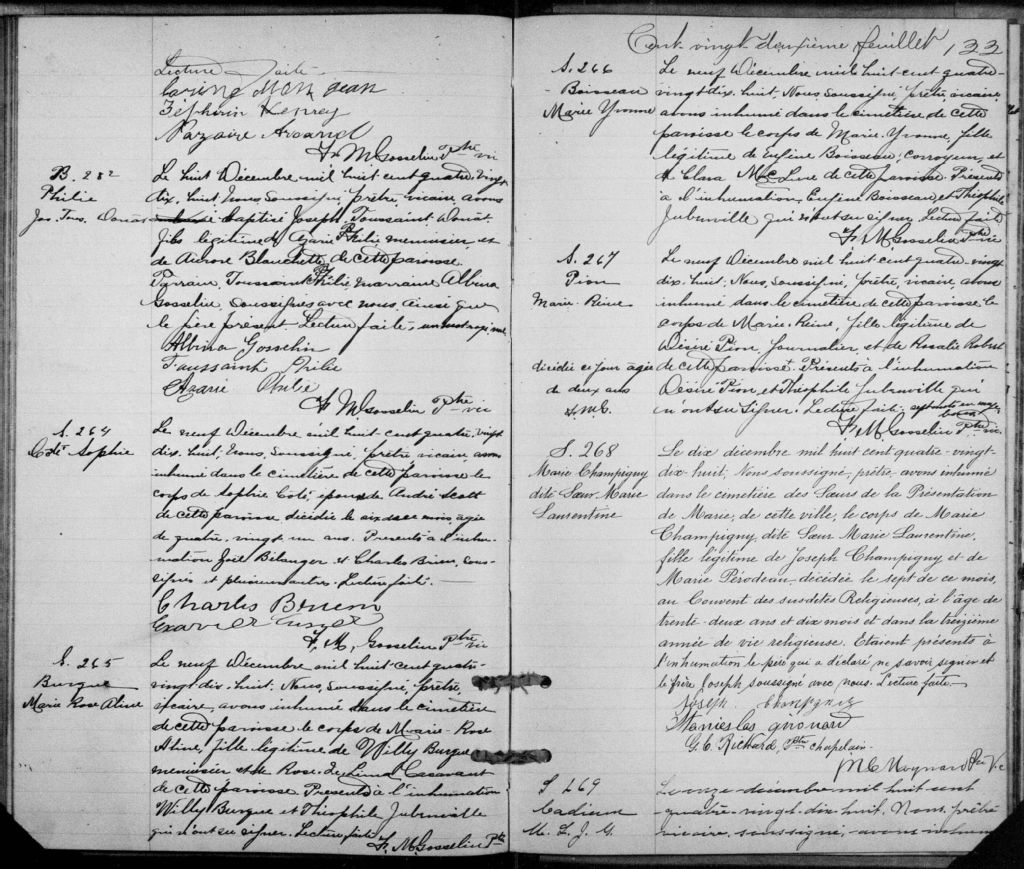 Lecture faite
Corine Mongeau
Zéphirin Kerrey
Nazaire Arcand
F. M. Gosselin Ptre vic
B. 282
Philie
Jos. Tous. Donat
Le huit Décembre mil huit cent quatre-vingt
dix-huit, Nous, Soussigné, prêtre, vicaire, avons
baptisé Joseph Toussaint Donat
fils légitime de Azarie Philie menuisier, et
de Aurore Blanchette, de cette paroisse.
Parrain, Toussaint Philie marraine Albina
Gosselin, soussignés avec nous ainsi que
le père présent Lecture faite,
Albina Gosselin
Toussaint Philie
Azarie Philie
F. M. Gosselin Ptre vic
S. 264
Coté Sophie
Le neuf Décembre mil huit-cent quatre-vingt
dix-huit, Nous, Soussigné, prêtre vicaire, avons
inhumé dans le cimetière de cette paroisse le
corps de Sophie Coté, épouse de André Scott
de cette paroisse décédée le six de ce mois agée
de quatre-vingt un ans. Présents à l'inhu-
mation Joël Bélanger et Charles Brien, sous-
signés et plusieurs autres. Lecture faite.
Charles Brien
F. M. Gosselin Ptre vic
S. 265
Burque
Marie Rose Aline
Le neuf Décembre mil huit-cent quatre-
vingt dix-huit. Nous, Soussigné, prêtre,
vicaire, avons inhumé dans le cimetière
de cette paroisse le corps de Marie-Rose
Aline, fille légitime de Willy Burque
menuisier et de Rose-de-Lima Casavant
de cette paroisse. Présents à l'inhumation
Willy Burque et Théophile Jubinville
qui n'ont su signer. Lecture faite
F. M. Gosselin Ptre
Cent-vingt-deuxième feuillet 122
S. 266
Boisseau
Marie Yvonne
Le neuf Décembre mil huit-cent quatre-
vingt-dix-huit, Nous, soussigné, prêtre, vicaire,
avons inhumé dans le cimetière de cette
paroisse le corps de Marie-Yvonne, fille
légitime de Eugène Boisseau, corroyeur, et
de Clara de cette paroisse. Présents
à l'inhumation, Eugène Boisseau et Théophile
Jubinville qui n'ont su signer. Lecture faite
F. M. Gosselin Ptre vic
S. 267
Pion
Marie-Reine
Le neuf Décembre mil huit-cent quatre-vingt
dix-huit. Nous, Soussigné, prêtre, vicaire, avons
inhumé dans le cimetière de cette paroisse le
corps de Marie-Reine, fille légitime de
Désiré Pion, Journalier et de Rosalie Robert
décédée ce jour agée
de deux ans
de cette paroisse. Présents à l'inhumation
Désiré Pion, et Théophile Jubinville qui
n'ont su signer. Lecture faite.
F. M. Gosselin Ptre vic.
S. 268
Marie Champigny
dite Sœur Marie
Laurentine
Le dix décembre mil huit cent quatre-vingt-
dix-huit, Nous soussigné, prêtre, avons inhumé
dans le cemetière des Sœurs de la Présentation
de Marie, de cette ville, le corps de Marie
Champigny, dite Sœur Marie Laurentine,
fille légitime de Joseph Champigny et de
Marie Pérodeau, décédée le sept de ce mois,
au Couvent des susdites Religieuses, à l'âge de
trente-deux ans et dix mois et dans la treizième
année de vie religieuse. Etaient présents à
l'inhumation le père qui a déclaré ne savoir signer et
le frère Joseph soussigné avec nous. Lecture faite.
Joseph Champigny
Stanislas Guouard
G. C. Richard, ptre chapelain.
M C Maynard Ptre Vic
S 269
Cadieux
M. L. J. G.
Le onze décembre mil huit cent
quatre-vingt-dix-huit. Nous, prêtre
vicaire, soussigné, avons inhumé